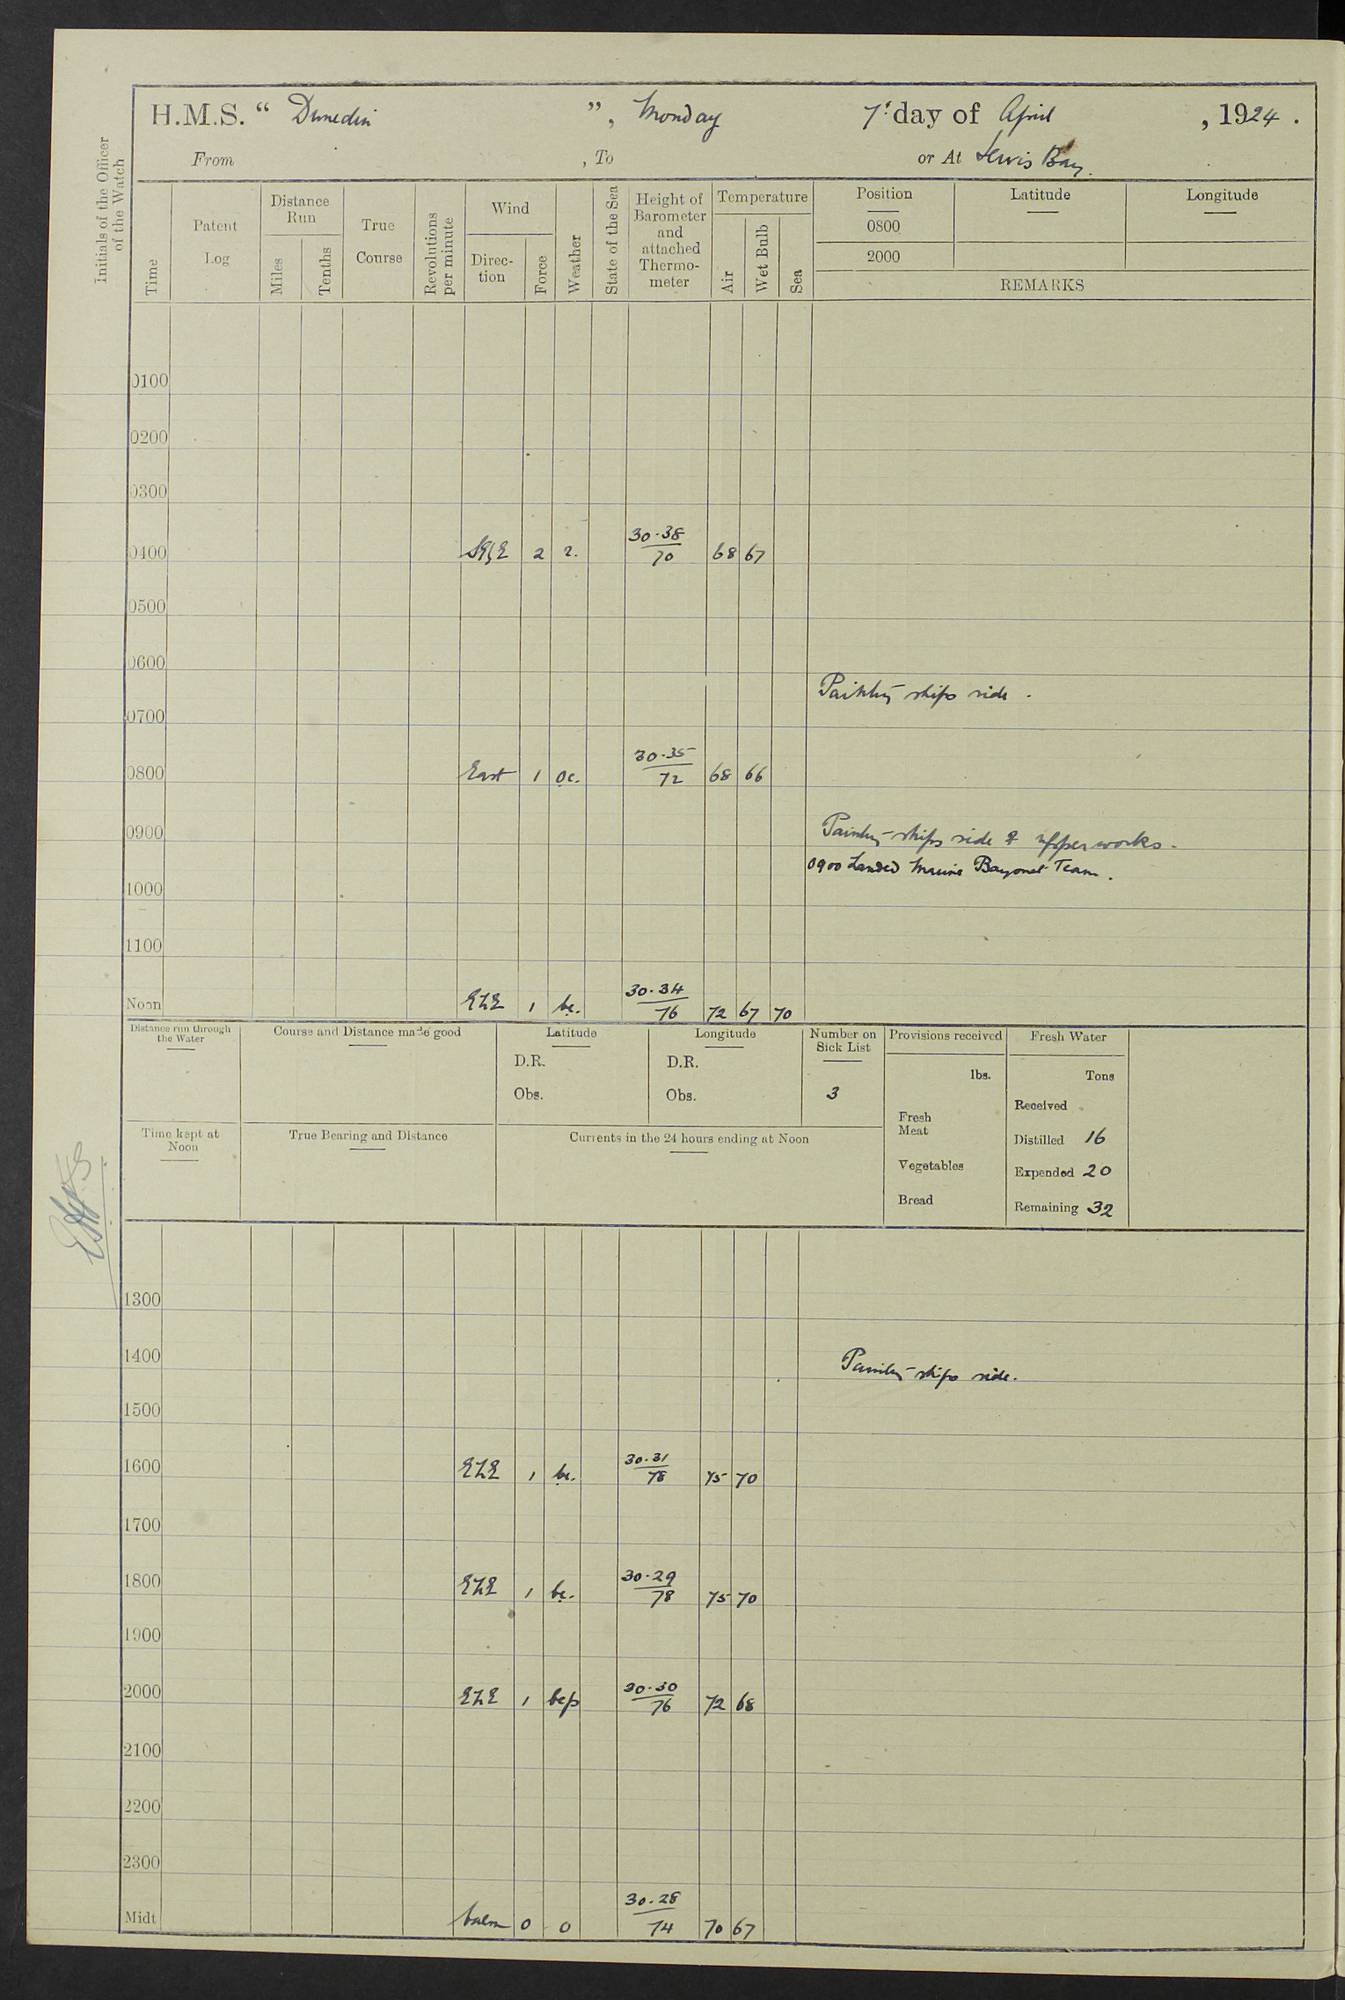 H.M.S. “ Dunedin ”, Monday 7th day of April, 1924.
From , To or At Jervis Bay.
Initials of the Officer of the Watch
Time
Patent Log
Distance Run
Miles
Tenths
True Course
Revolutions per minute
Wind
Direction
Force
Weather
State of the Sea
Height of Barometer and attached Thermometer
Temperature
Air
Wet Bulb
Sea
Position
Latitude
Longitude
0800
2000
REMARKS
0100
0200
0300
0400 2 30.38/70 68 67
0500
0600
Painting ships side.
0700
0800 East 1 oc. 30.35/72 68 66
0900 Painting ships side & upperworks.
0900 Landed Marine Bayonet Team.
1000
1100
Noon ELE 1 bc. 30.34/76 72 67 70
Distance run through the Water
Course and Distance made good
Latitude
D.R.
Obs.
Longitude
D.R.
Obs.
Number on Sick List
3
Provisions received
lbs.
Fresh Meat
Vegetables
Bread
Fresh Water
Tons
Received
Distilled 16
Expended 20
Remaining 32
Time kept at Noon
True Bearing and Distance
Currents in the 24 hours ending at Noon
1300
1400 Painting ships side.
1500
1600 ELE 1 bc. 30.31/78 75 70
1700
1800 ELE 1 bc. 30.29/78 75 70
1900
2000 ELE 1 bcp 30.30/76 72 68
2100
2200
2300
Midt Calm 0 0 30.28/74 70 67